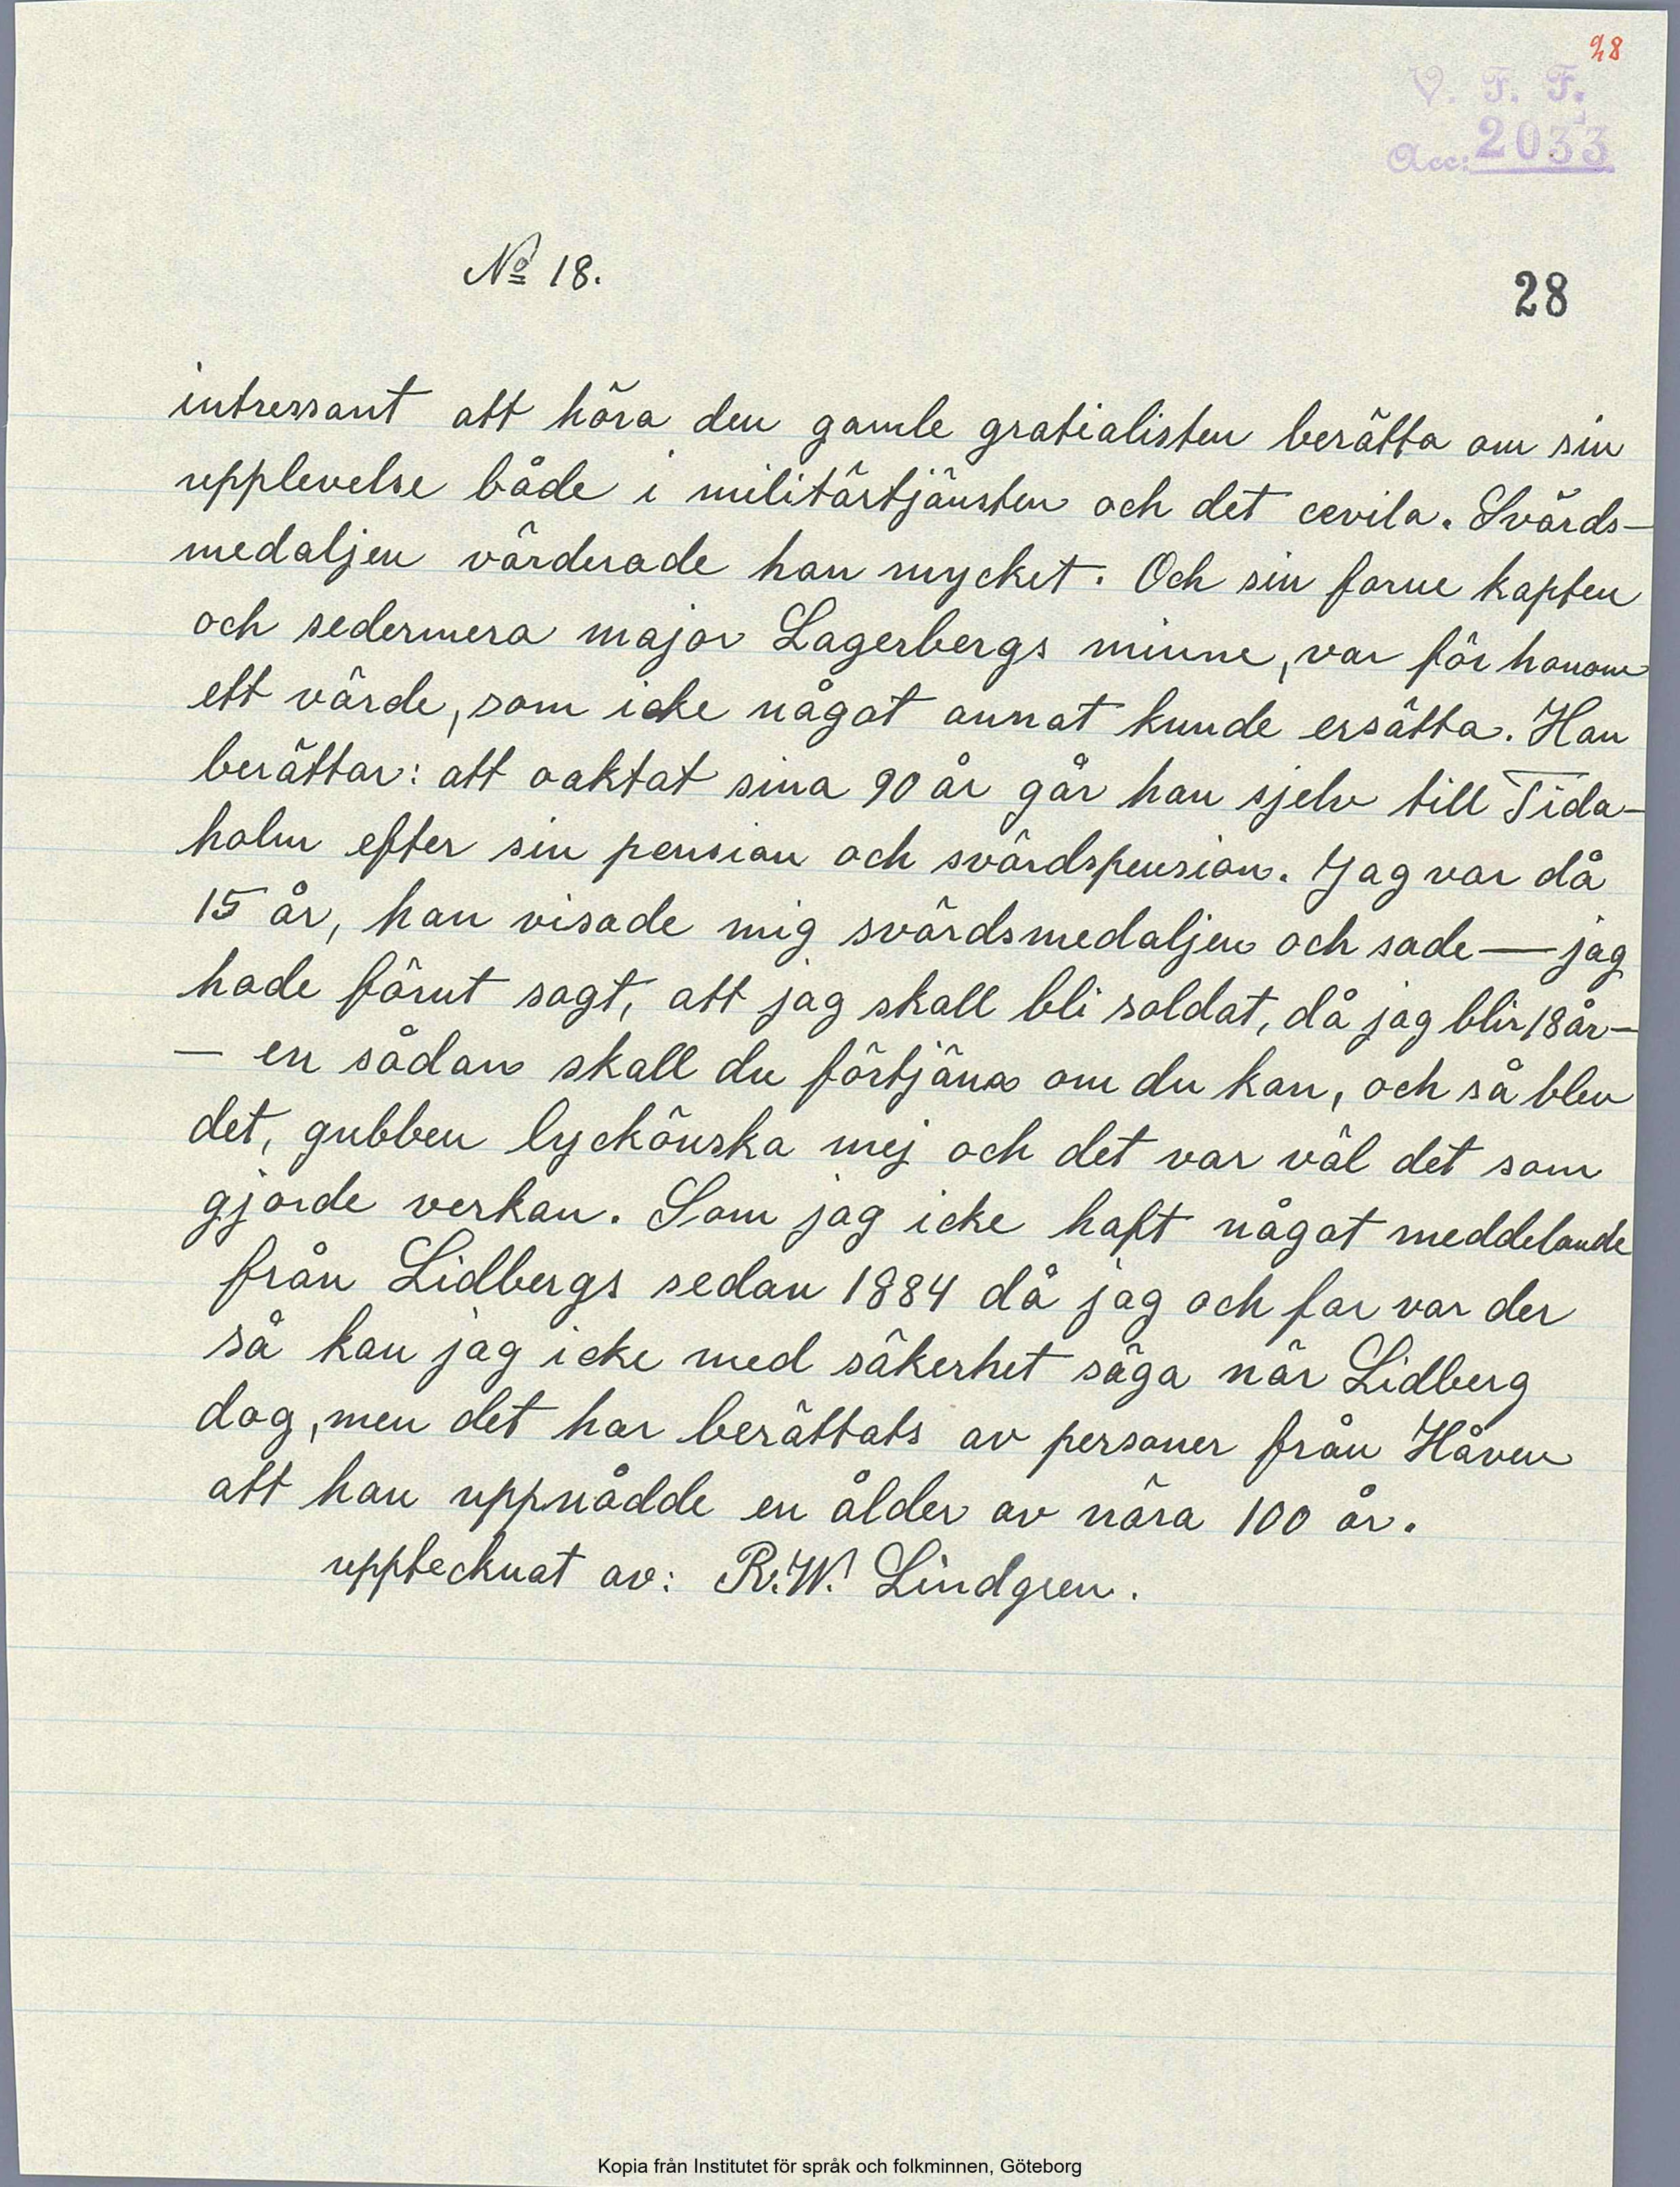 28
V. F. F.
Acc: 2033
No 18.
28
intressant att höra den gamle gratialisten berätta om sin
upplevelse både i militärtjänsten och det cevila. Svärds-
medaljen värderade han mycket. Och sin forne kapten
och sedermera major Lagerbergs minne, var för honom
ett värde, som icke något annat kunde ersätta. Han
berättar: att oaktat sina 90 år går han sjelv till Tida-
holm efter sin pension och svärdspension. Jag var då
15 år, han visade mig svärdsmedaljen och sade — jag
hade förut sagt, att jag skall bli soldat, då jag blir 18 år —
— en sådan skall du förtjäna om du kan, och så blev
det, gubben lyckönska mej och det var väl det som
gjorde verkan. Som jag icke haft något meddelande
från Lidbergs sedan 1884 då jag och far var der
så kan jag icke med säkerhet säga när Lidberg
dog, men det har berättats av personer från Håven
att han uppnådde en ålder av nära 100 år.
upptecknat av: R.W. Lindgren.
Kopia från Institutet för språk och folkminnen, Göteborg